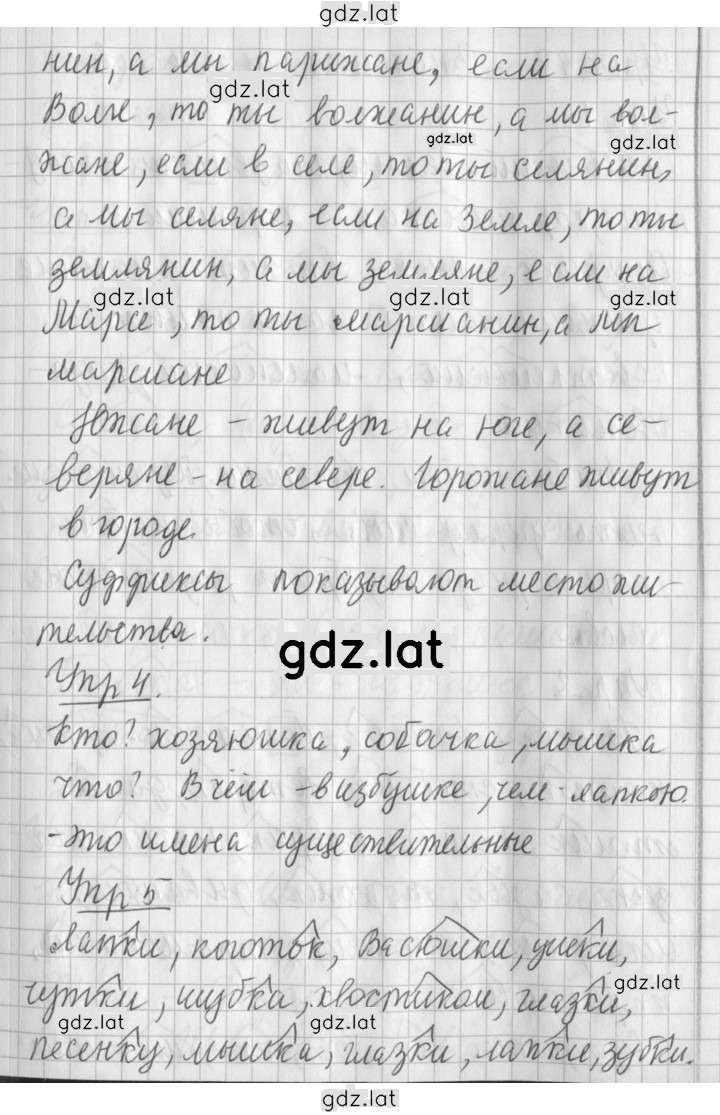 gdz.lat
нин, а мы парижане, если на
gdz.lat
Волге, то ты волжанин, а мы вол-
gdz.lat gdz.lat
жане, если в селе, то ты селянин,
а мы селяне, если на Земле, то ты
землянин, а мы земляне, если на
gdz.lat gdz.lat gdz.lat
Марсе, то ты марсианин, а мы
марсиане
Южане - живут на юге, а се-
веряне - на севере. Горожане живут
в городе.
Суффиксы показывают место жи-
тельства.
gdz.lat
Упр 4.
Кто? хозяюшка, собачка, мышка
что? В чём - в избушке, чем - лапкою.
- это имена существительные
Упр 5
Лапки, коготок, Васюшки, ушки,
gdz.lat
чутки, шубка, хвостиком, глазки,
gdz.lat gdz.lat
песенку, мышка, глазки, лапки, зубки.
gdz.lat